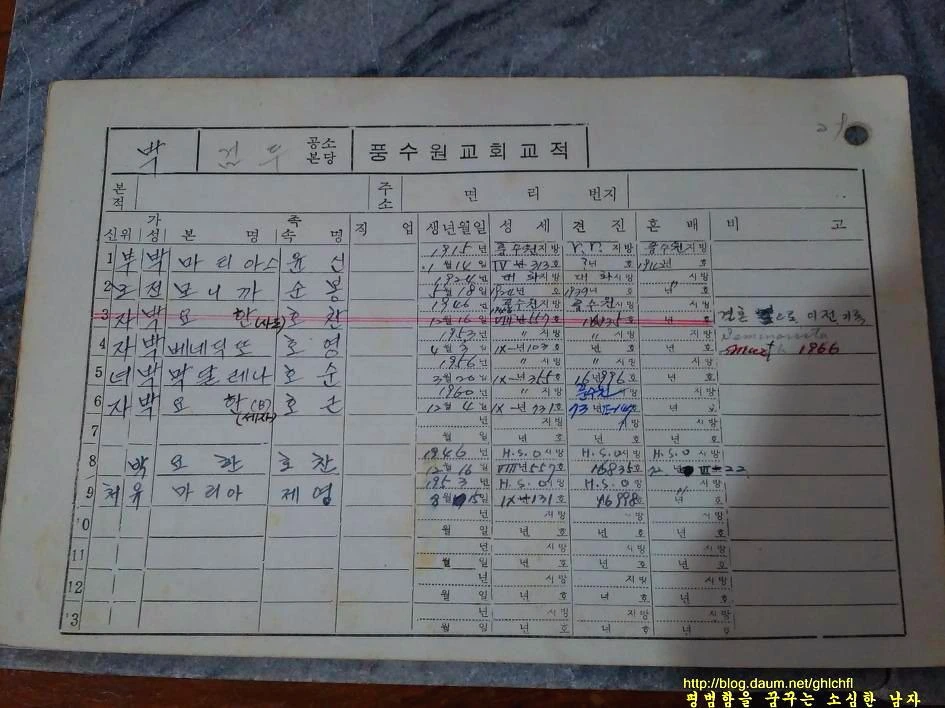 박 공소 본당 풍수원교회교적
본적 주소 면 리 번지
신위 가성 본 명 족속 명 직 업 생년월일 성 세 견 진 혼 배 비 고
1 부 박 마리아스 윤 신 1915년 1월 14일 풍수원지방 IV년 313호 지방 년 호 풍수원지방
2 모 전 모니까 순 봉 1924년 5월 18일 대화지방 1924년 호 대화지방 1939년 호 지방 년 호
3 자 박 요 한(사도) 호 찬 1946년 12월 16일 풍수원지방 VIII년 557호 풍수원지방 지방 년 호 결혼 으로 이전 기록
4 자 박 베네딕또 호 영 1953년 4월 3일 〃지방 IX-년 103호 〃지방 년 호 지방 년 호 1966
5 녀 박 막달레나 호 순 1956년 3월 20일 〃지방 IX-년 365호 〃지방 16년 996호 지방 년 호
6 자 박 요 한(세자) 호 근 1960년 12월 4일 〃지방 IX-년 731호 풍수원 73년 지방 년 호
7 년 월 일 지방 년 호 지방 년 호 지방 년 호
8 박 요 한 호 찬 1946년 12월 16일 H.S.O지방 VIII년 557호 H.S.O지방 16835호 H.S.O지방
9 처 유 마리아 제 영 1953년 8월 15일 H.S.O지방 IX년 131호 H.S.O지방 16998호 〃지방 년 호
10 년 월 일 지방 년 호 지방 년 호 지방 년 호
11 년 월 일 지방 년 호 지방 년 호 지방 년 호
12 년 월 일 지방 년 호 지방 년 호 지방 년 호
13 년 월 일 지방 년 호 지방 년 호 지방 년 호
http://blog.daum.net/ghlchfl
평범함을 꿈꾸는 소심한 남자